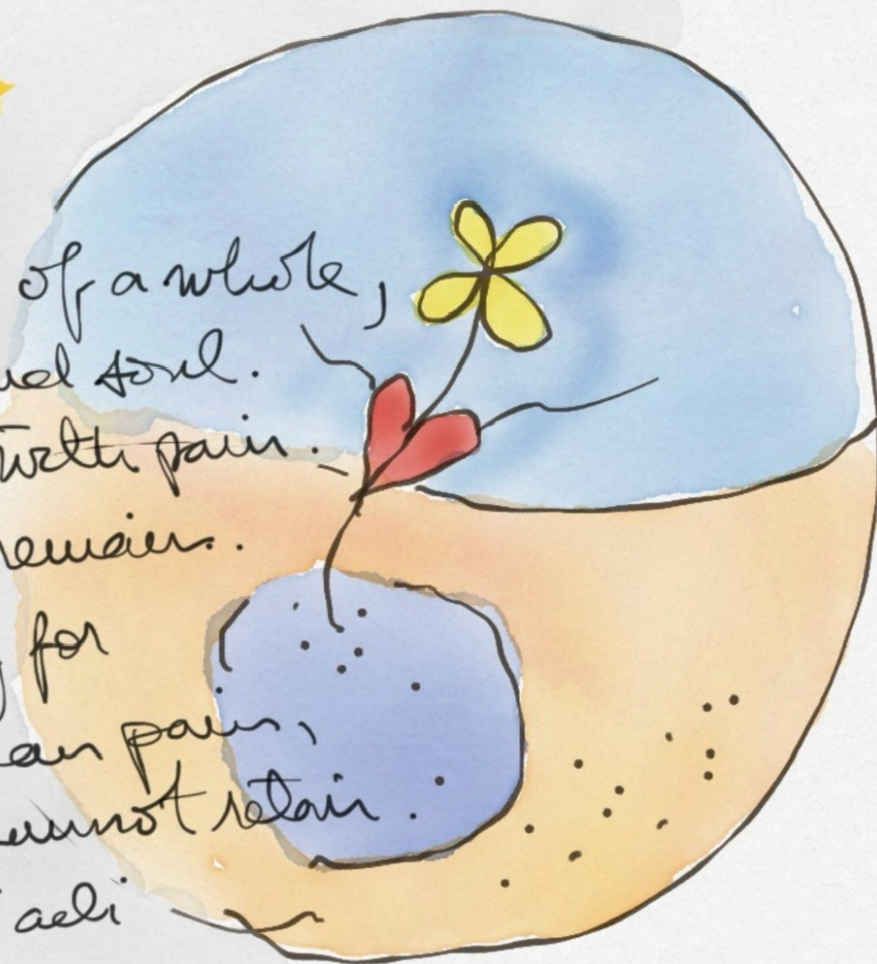 of a whole,
soul.
with pain.
remain.
for
pain,
cannot retain.